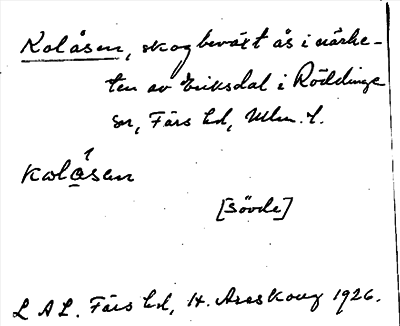 Kolåsen, skogbeväxt ås i närhe-
ten av Eriksdal i Röddinge
sn, Färs hd, Mlm. l.
kolåsen
[Sövde]
L A L. Färs hd, H. Areskoug 1926.